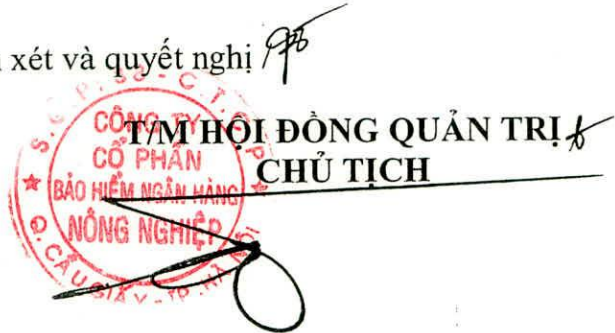 xét và quyết nghị
T/M HỘI ĐỒNG QUẢN TRỊ
CHỦ TỊCH
CÔNG TY
CỔ PHẦN
BẢO HIỂM NGÂN HÀNG
NÔNG NGHIỆP
Q. CẦU GIẤY - TP. HÀ NỘI